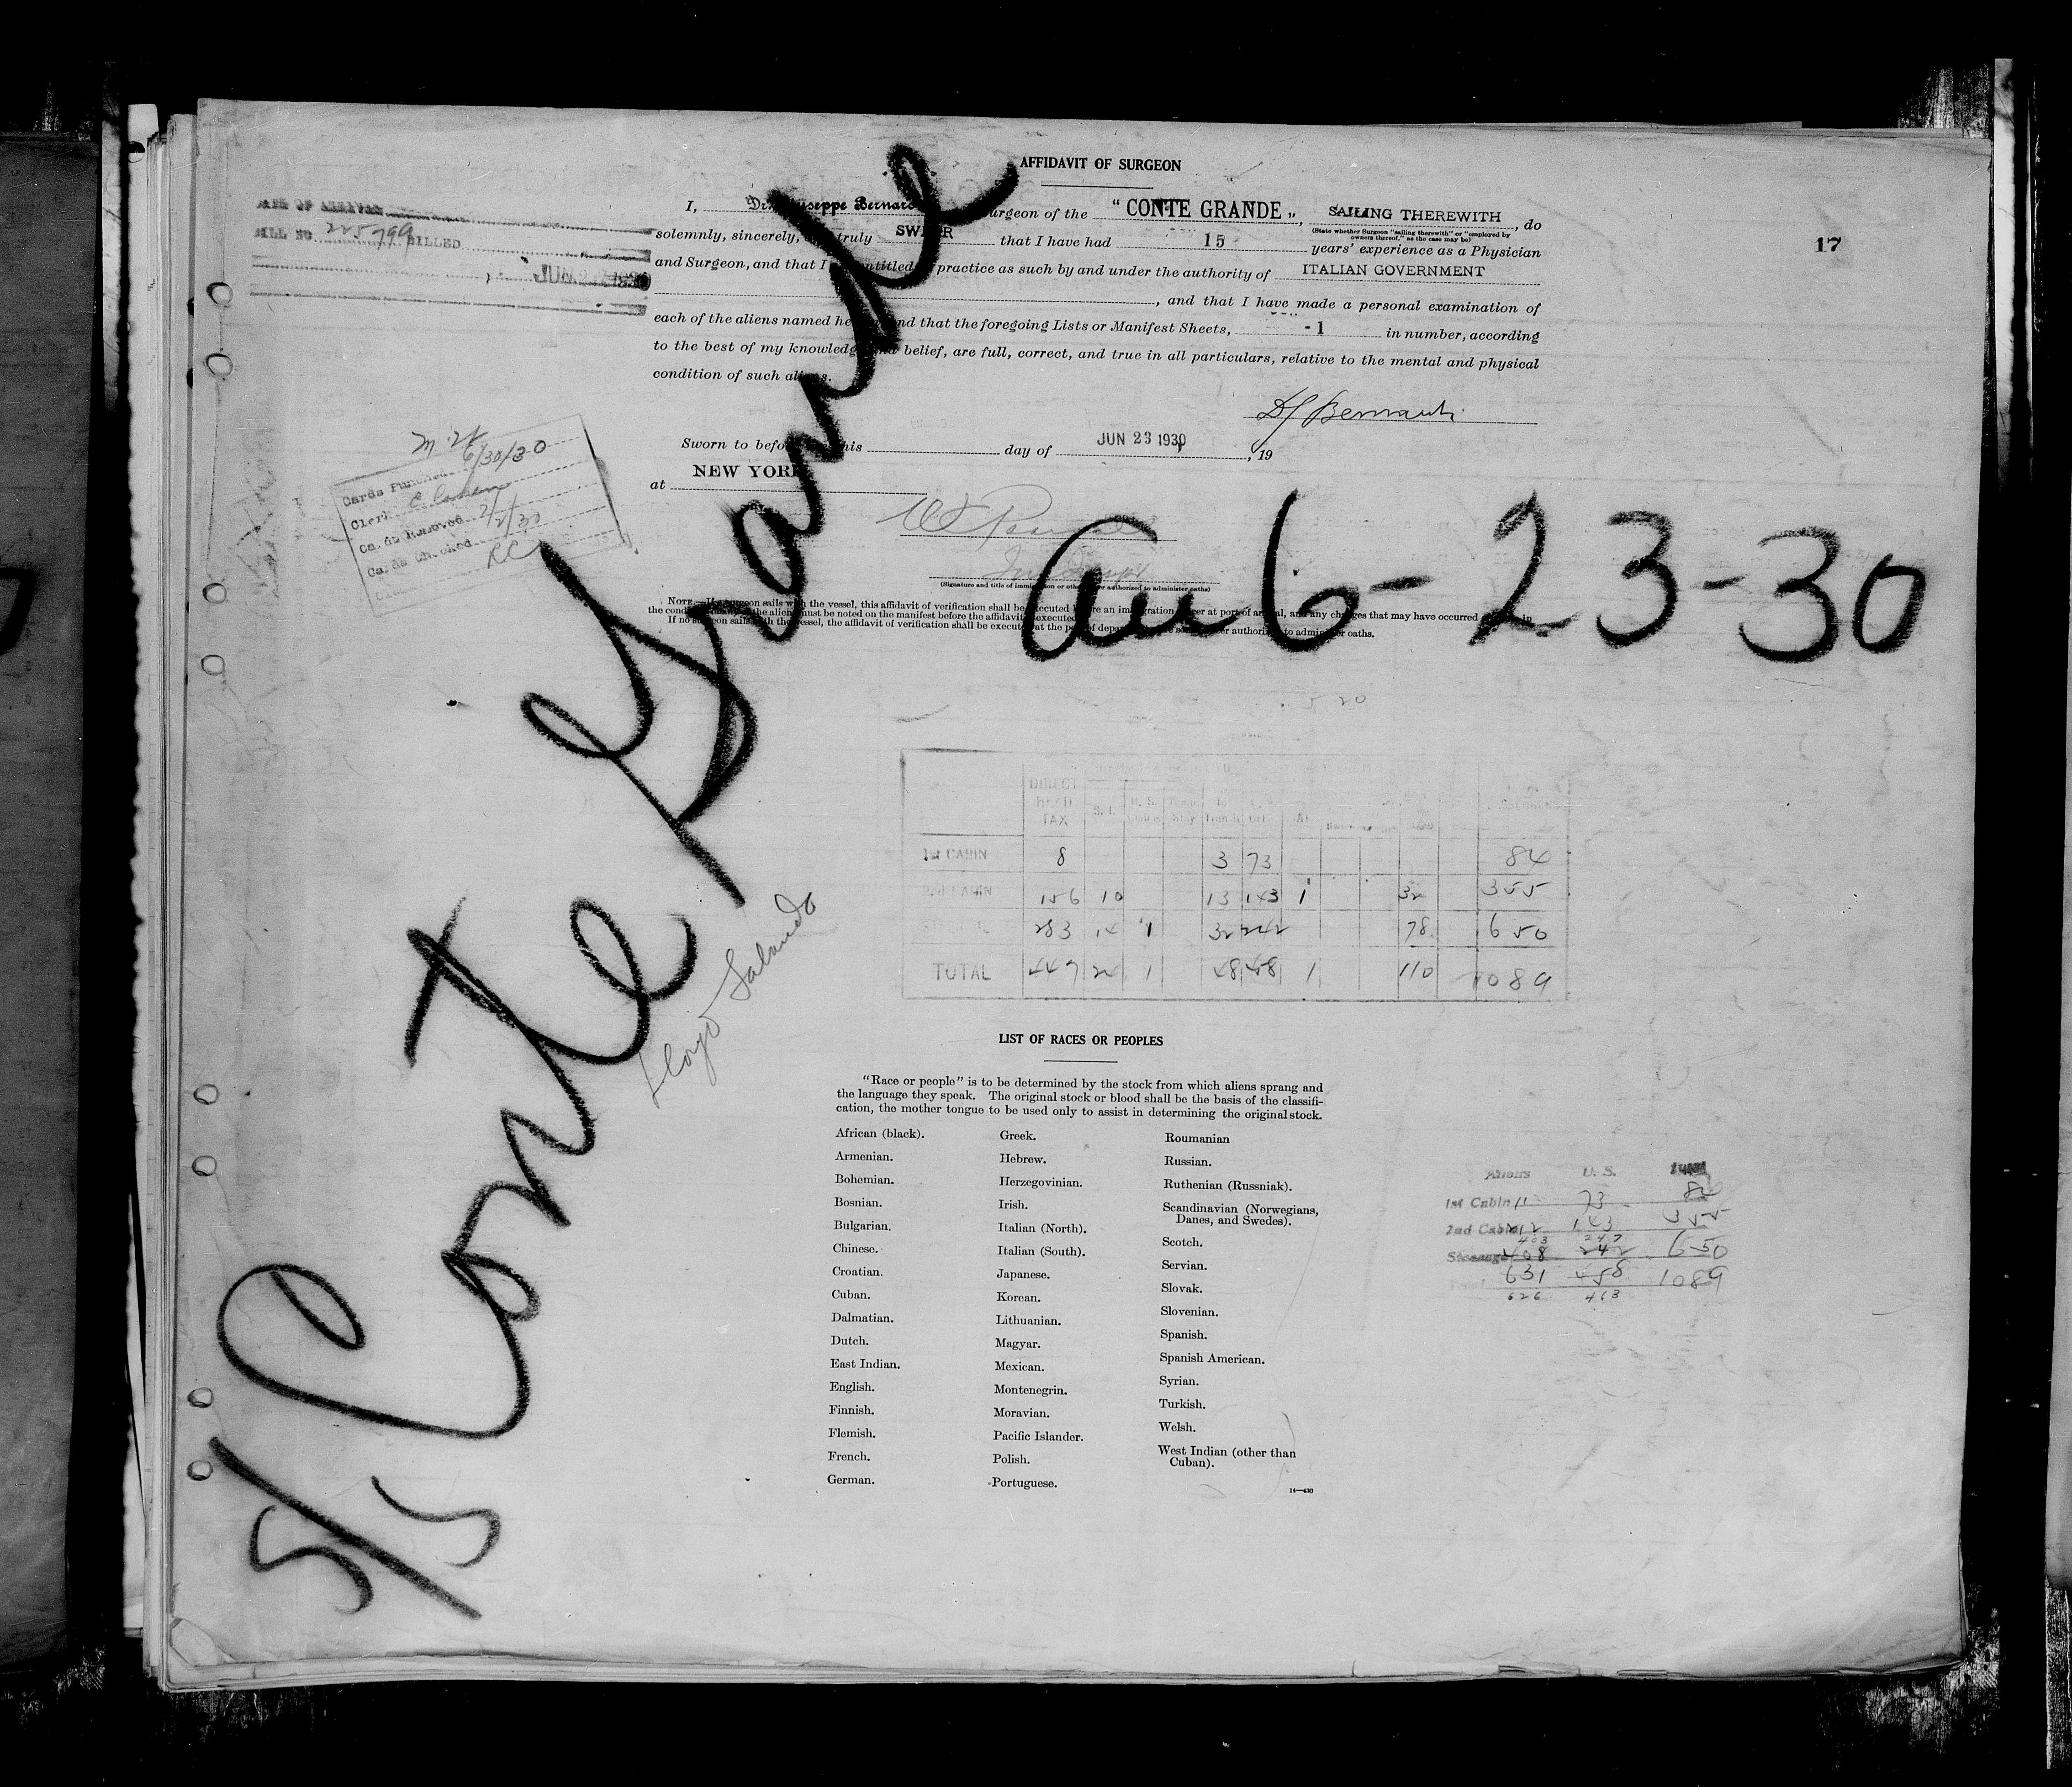 AFFIDAVIT OF SURGEON
DATE OF ARRIVAL
BILL NO 225799 BILLED
JUN 1930
17
I, Dr. Giuseppe Bernar Surgeon of the "CONTE GRANDE", SAILING THEREWITH, do
(State whether Surgeon "sailing therewith" or "employed by owners thereof," as the case may be)
solemnly, sincerely, truly SWEAR that I have had 15 years' experience as a Physician
and Surgeon, and that I entitled practice as such by and under the authority of ITALIAN GOVERNMENT
, and that I have made a personal examination of
each of the aliens named he nd that the foregoing Lists or Manifest Sheets, -1 in number, according
to the best of my knowledge and belief, are full, correct, and true in all particulars, relative to the mental and physical
condition of such aliens.
Sworn to before this day of JUN 23 1930, 19
at NEW YORK
(Signature and title of immigration or other authorized to administer oaths)
NOTE.—If a surgeon sails with the vessel, this affidavit of verification shall be executed before an immigration officer at port of arrival, and any changes that may have occurred in
the condition the aliens must be noted on the manifest before the affidavit executed
If no surgeon sails with the vessel, the affidavit of verification shall be executed at the port of departure authorized to administer oaths.
6/30/30
Cards Punched
Clerk
Cards Removed 7/2/30
Cards Checked RC
S/S Conte Grande
Arr 6-23-30
Lloyd Sabaudo
520
DIRECT HEAD TAX S. I. U. S.
1st CABIN 8 3 73 84
2nd CABIN 156 10 13 143 1 32 355
283 14 1 32 242 78 650
TOTAL 447 24 1 48 458 1 110 1089
LIST OF RACES OR PEOPLES
"Race or people" is to be determined by the stock from which aliens sprang and
the language they speak. The original stock or blood shall be the basis of the classifi-
cation, the mother tongue to be used only to assist in determining the original stock.
African (black).
Armenian.
Bohemian.
Bosnian.
Bulgarian.
Chinese.
Croatian.
Cuban.
Dalmatian.
Dutch.
East Indian.
English.
Finnish.
Flemish.
French.
German.
Greek.
Hebrew.
Herzegovinian.
Irish.
Italian (North).
Italian (South).
Japanese.
Korean.
Lithuanian.
Magyar.
Mexican.
Montenegrin.
Moravian.
Pacific Islander.
Polish.
Portuguese.
Roumanian
Russian.
Ruthenian (Russniak).
Scandinavian (Norwegians,
Danes, and Swedes).
Scotch.
Servian.
Slovak.
Slovenian.
Spanish.
Spanish American.
Syrian.
Turkish.
Welsh.
West Indian (other than
Cuban).
14—430
Aliens U. S. Total
1st Cabin 11 73 84
2nd Cabin 212 143 355
403 247
Steerage 408 242 650
631 458 1089
626 463